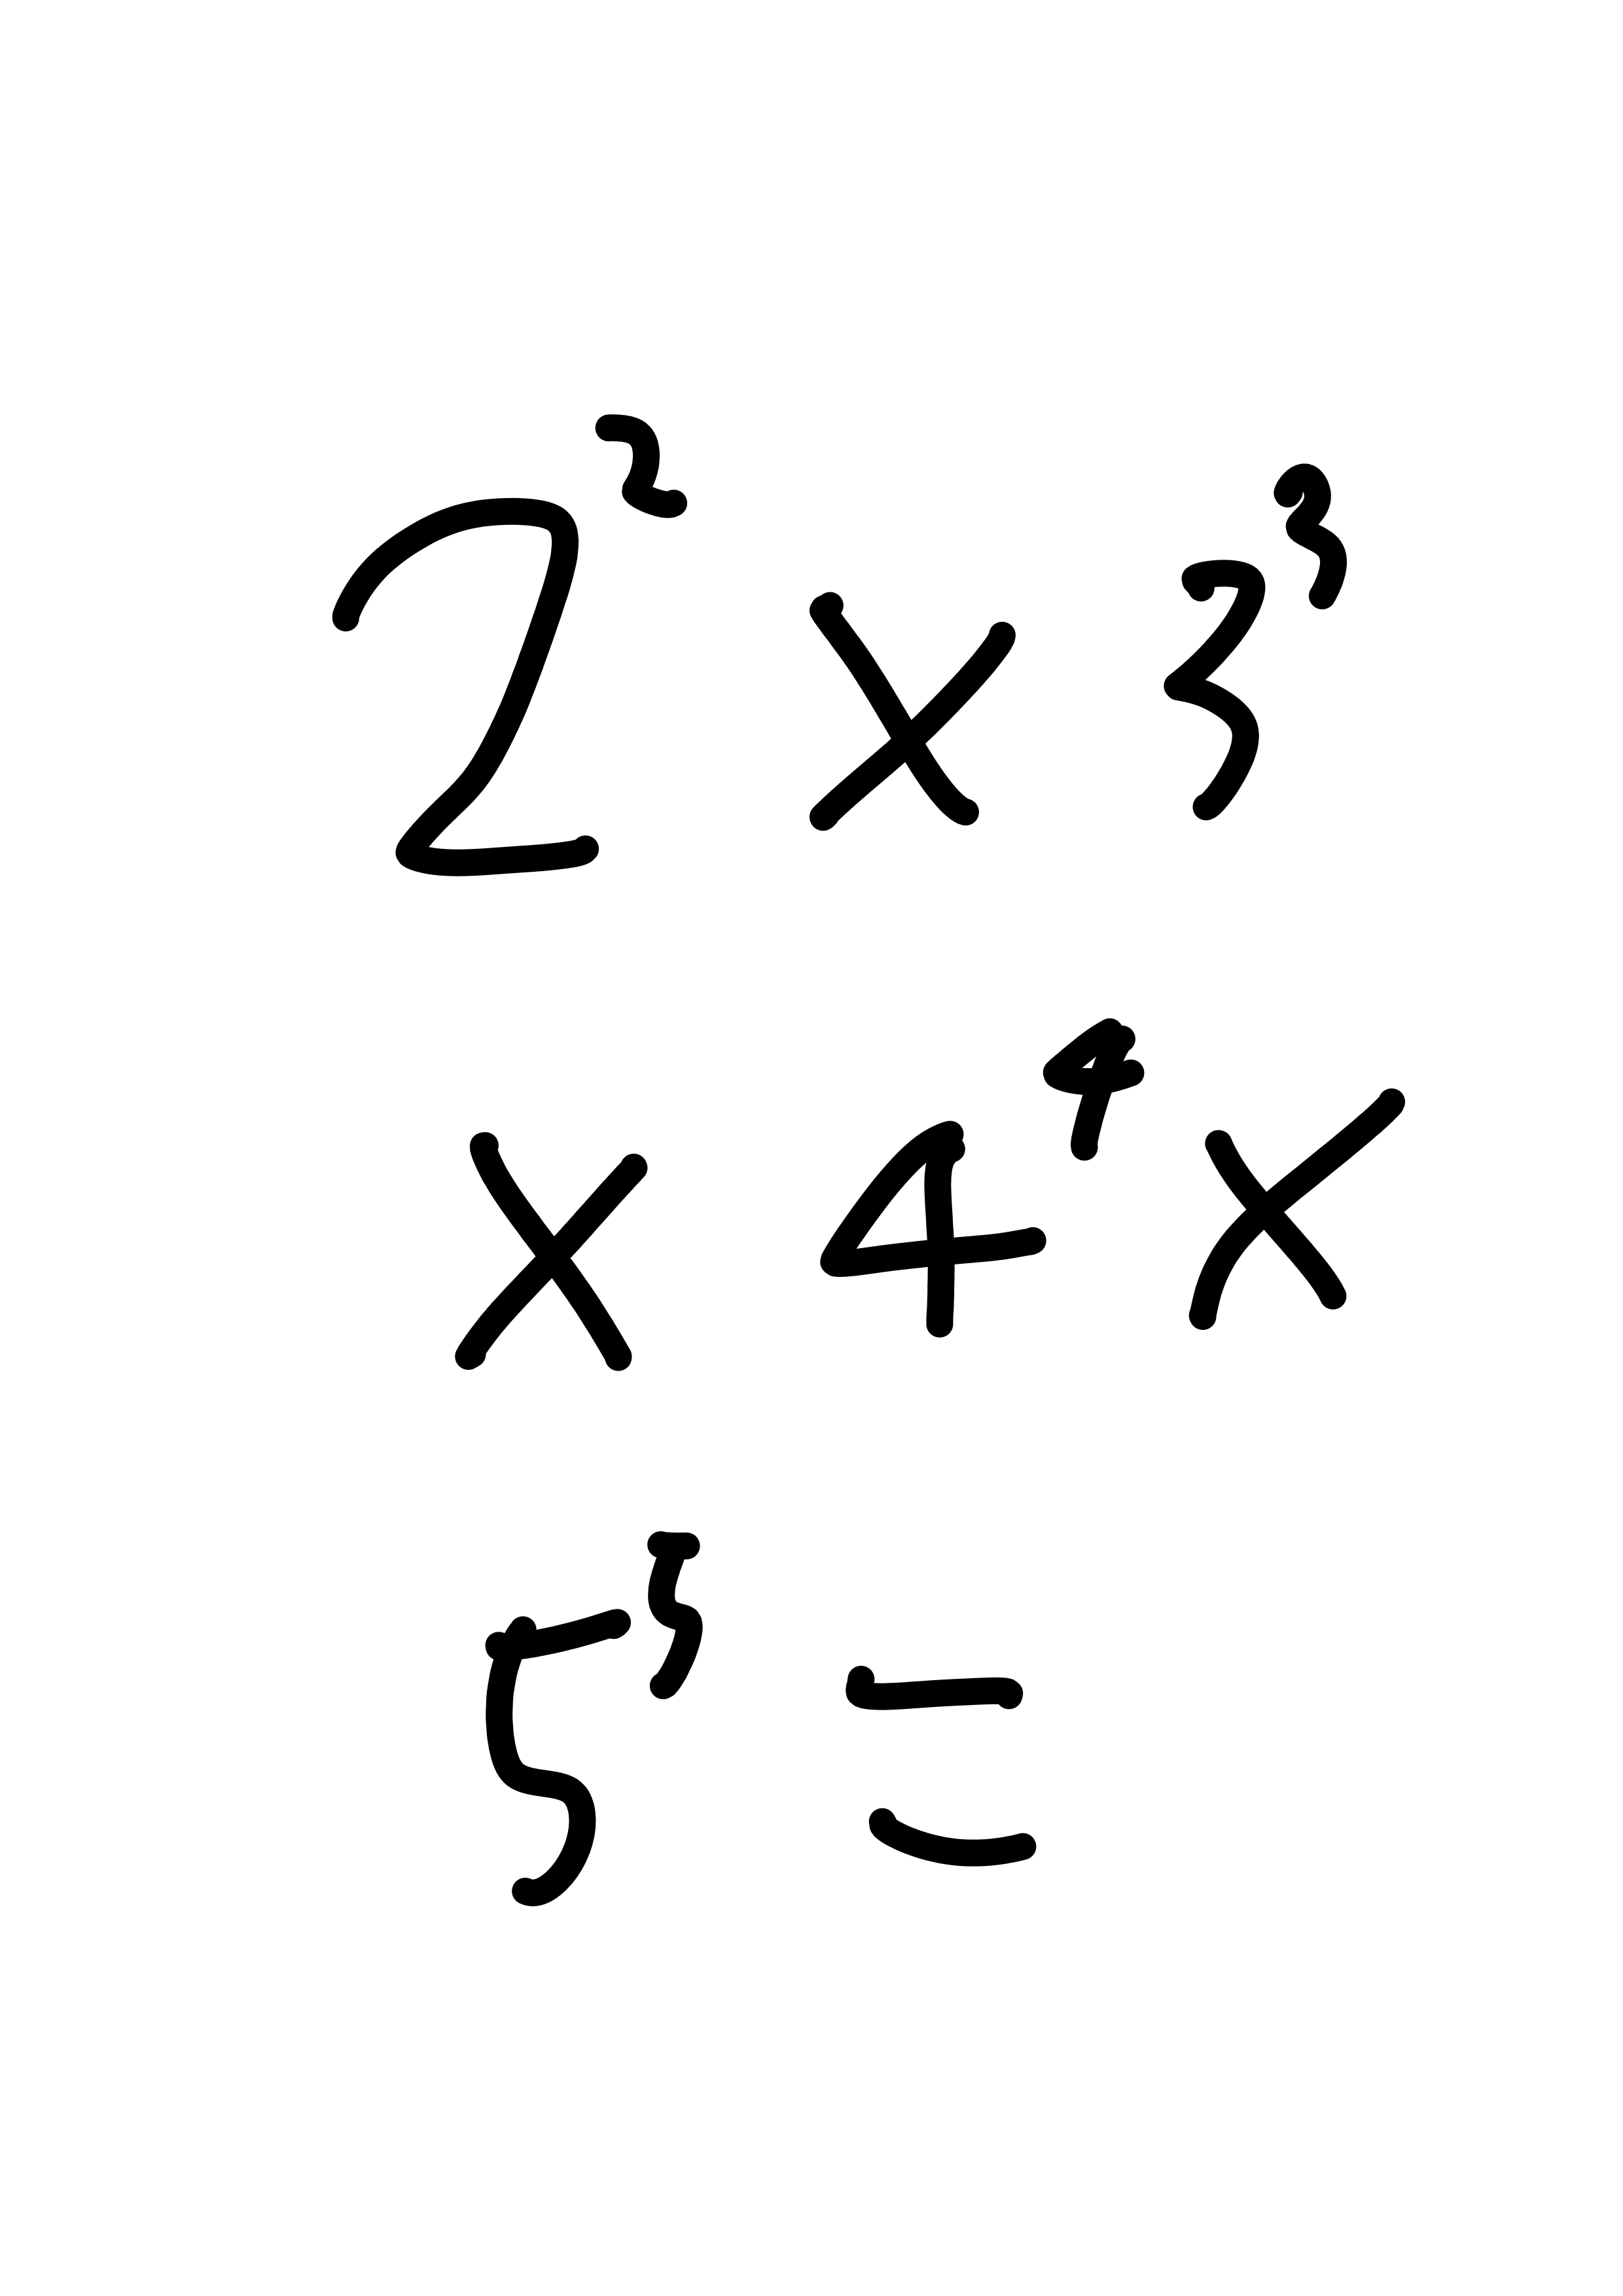 2² × 3³
× 4⁴ ×
5⁵ =